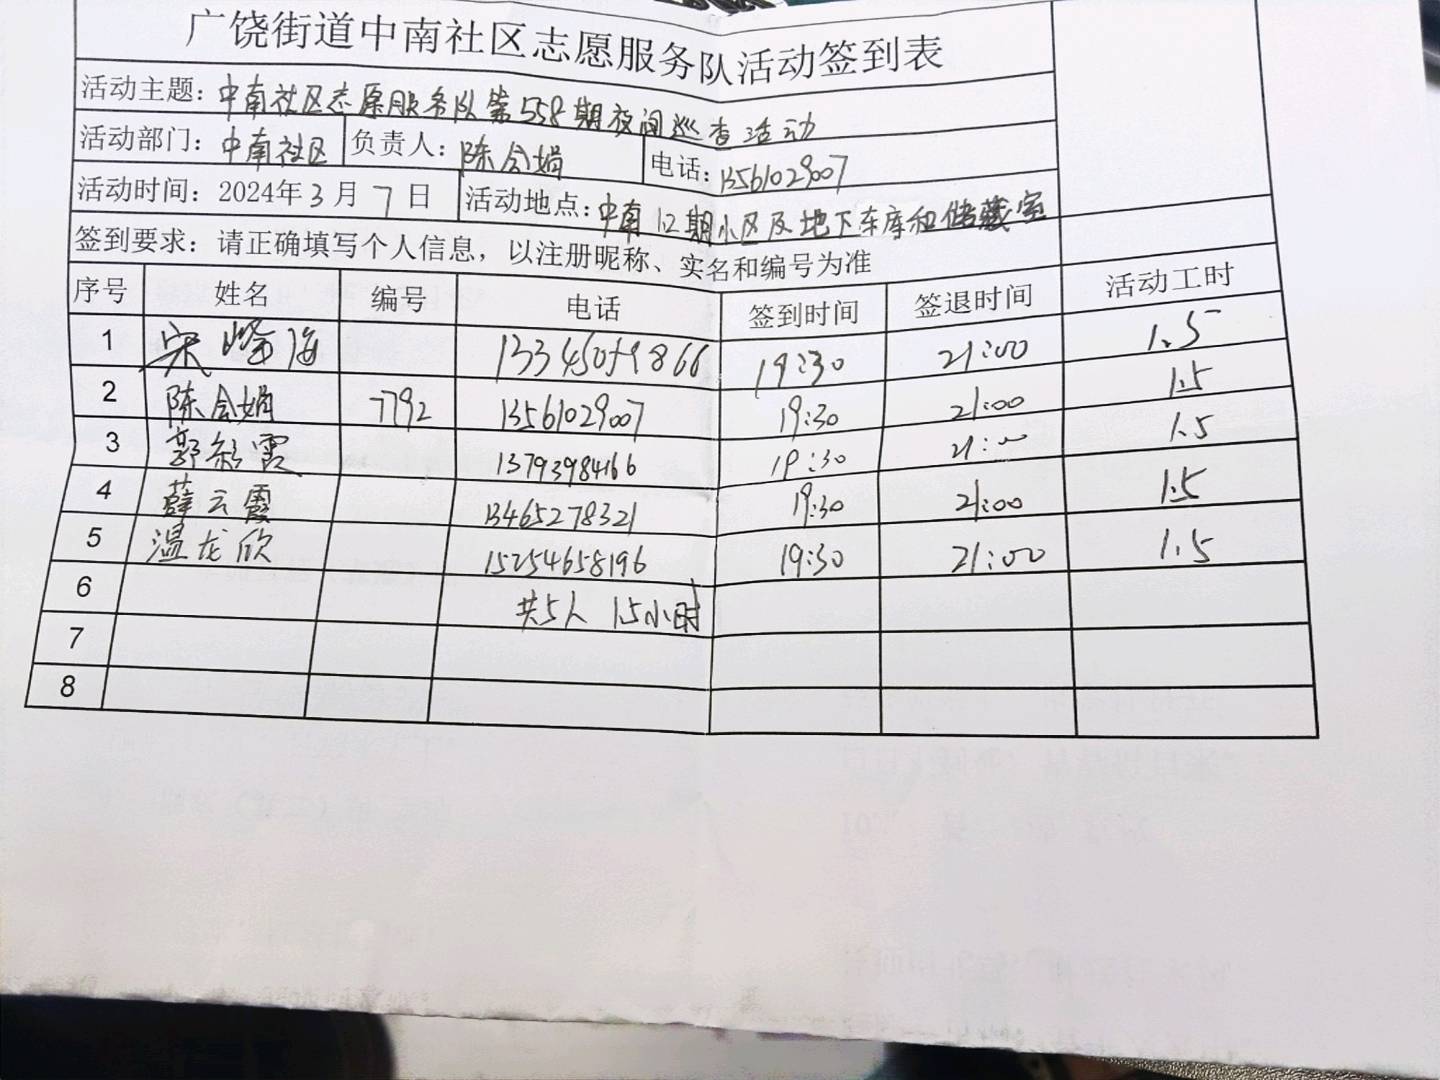 广饶街道中南社区志愿服务队活动签到表
活动主题：中南社区志愿服务队第558期夜间巡查活动
活动部门：中南社区 负责人：陈会娟 电话：13561029007
活动时间：2024年3月7日 活动地点：中南12期小区及地下车库和储藏室
签到要求：请正确填写个人信息，以注册昵称、实名和编号为准
序号 姓名 编号 电话 签到时间 签退时间 活动工时
1 宋峰海 19:30 21:00 1.5
2 陈会娟 7792 13561029007 19:30 21:00 1.5
3 郭彩霞 13793984166 19:30 21:00 1.5
4 薛云霞 13465278321 19:30 21:00 1.5
5 温龙欣 15254658196 19:30 21:00 1.5
6 共5人 1.5小时
7
8